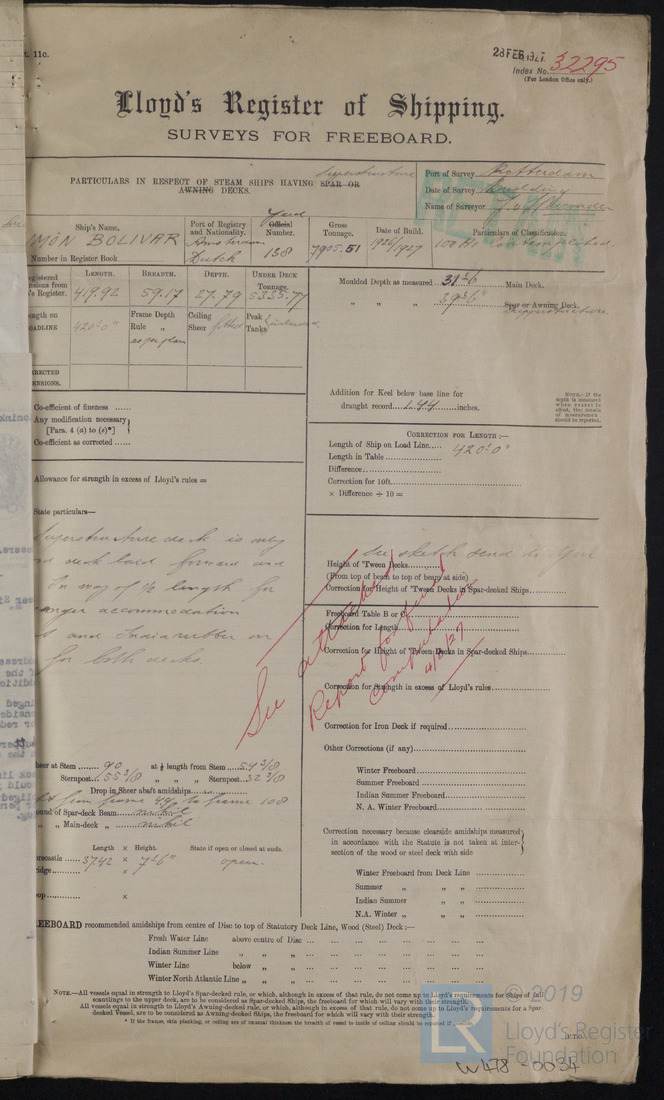 t. 11c.
28 FEB 1927
Index No. 32295
(For London Office only.)
Lloyd's Register of Shipping.
SURVEYS FOR FREEBOARD.
Superstructure
PARTICULARS IN RESPECT OF STEAM SHIPS HAVING SPAR OR
AWNING DECKS.
Port of Survey Rotterdam
Date of Survey Building
Name of Surveyor
Ship's Name.
MÓN BOLIVAR
Number in Register Book
Port of Registry
and Nationality.
Amsterdam
Dutch
Yard
Official
Number.
138
Gross
Tonnage.
7905.51
Date of Build.
1926/1927
Particulars of Classification.
100 A1 Contemplated.
egistered
nsions from
's Register.
LENGTH.
419.92
BREADTH.
59.17
DEPTH.
27.79
UNDER DECK
Tonnage.
5335.77
ength on
OADLINE
420'0"
Frame Depth
Rule "
as per plan
Ceiling
Sheer fitted
Peak
Tanks
RRECTED
ENSIONS.
Moulded Depth as measured 31'6 Main Deck.
" " " 39'6" Spar or Awning Deck.
Superstructure
Addition for Keel below base line for
draught record 1.44 inches.
NOTE.—If the
depth is measured
when vessel is
afloat, the details
of measurement
should be reported.
Co-efficient of fineness ......
Any modification necessary
[Para. 4 (a) to (e)*]
Co-efficient as corrected ......
CORRECTION FOR LENGTH :—
Length of Ship on Load Line..... 420'0"
Length in Table
Difference
Correction for 10ft.
× Difference ÷ 10 =
Allowance for strength in excess of Lloyd's rules =
State particulars—
Superstructure deck is only
deck laid forward and
In way of ½ length for
enger accommodation
and Indiarubber on
for both decks.
See sketch send to you
Height of 'Tween Decks
(From top of beam to top of beam at side)
Correction for Height of 'Tween Decks in Spar-decked Ships
Freeboard Table B or C
Correction for Length
Correction for Height of 'Tween Decks in Spar-decked Ships
Correction for Strength in excess of Lloyd's rules
See attached
Report for final
Computation
4/3/27
Correction for Iron Deck if required
Other Corrections (if any)
Winter Freeboard
Summer Freeboard
Indian Summer Freeboard
N. A. Winter Freeboard
heer at Stem ....... 90 at ⅛ length from Stem 54 3/8
Sternpost 55 3/8 " " " Sternpost 32 3/8
Drop in Sheer shaft amidships
from frame 49 to frame 108
ound of Spar-deck Beam
" " Main-deck "
Length × Height. State if open or closed at ends.
orecastle ..... 37.42 × 7'6" open.
ridge
oop ×
Correction necessary because clearside amidships measured
in accordance with the Statute is not taken at inter-
section of the wood or steel deck with side
Winter Freeboard from Deck Line
Summer " "
Indian Summer " "
N.A. Winter " "
EEBOARD recommended amidships from centre of Disc to top of Statutory Deck Line, Wood (Steel) Deck :—
Fresh Water Line above centre of Disc
Indian Summer Line " "
Winter Line below " "
Winter North Atlantic Line " "
NOTE.—All vessels equal in strength to Lloyd's Spar-decked rule, or which, although in excess of that rule, do not come up to Lloyd's requirements for Ships of full
scantlings to the upper deck, are to be considered as Spar-decked Ships, the freeboard for which will vary with their strength.
All vessels equal in strength to Lloyd's Awning-decked rule, or which, although in excess of that rule, do not come up to Lloyd's requirements for a Spar-
decked Vessel, are to be considered as Awning-decked Ships, the freeboard for which will vary with their strength.
* If the frames, skin planking, or ceiling are of unusual thickness the breadth of vessel to inside of ceiling should be reported if possible.
[P.T.O.
© 2019
Lloyd's Register
Foundation
W478-0034